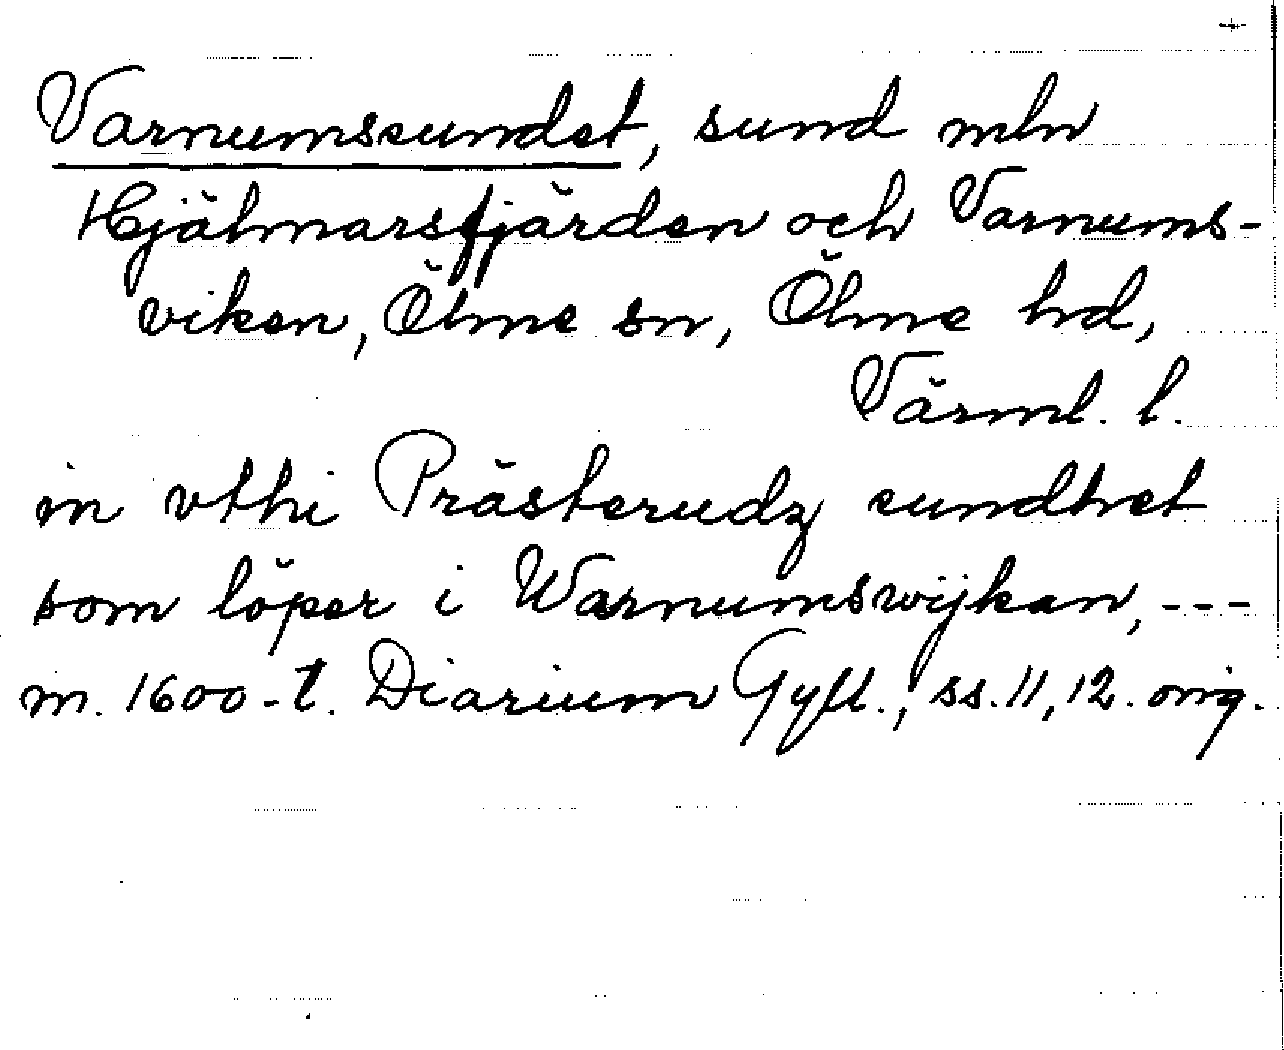 Varnumssundet, sund mln
Hjälmarsfjärden och Varnums-
viken, Ölme sn, Ölme hd,
Värml. l.
in vthi Prästerudz sundhet
som löper i Warnumswijkan, ---
m. 1600-t. Diarium Gyll., ss. 11, 12. orig.